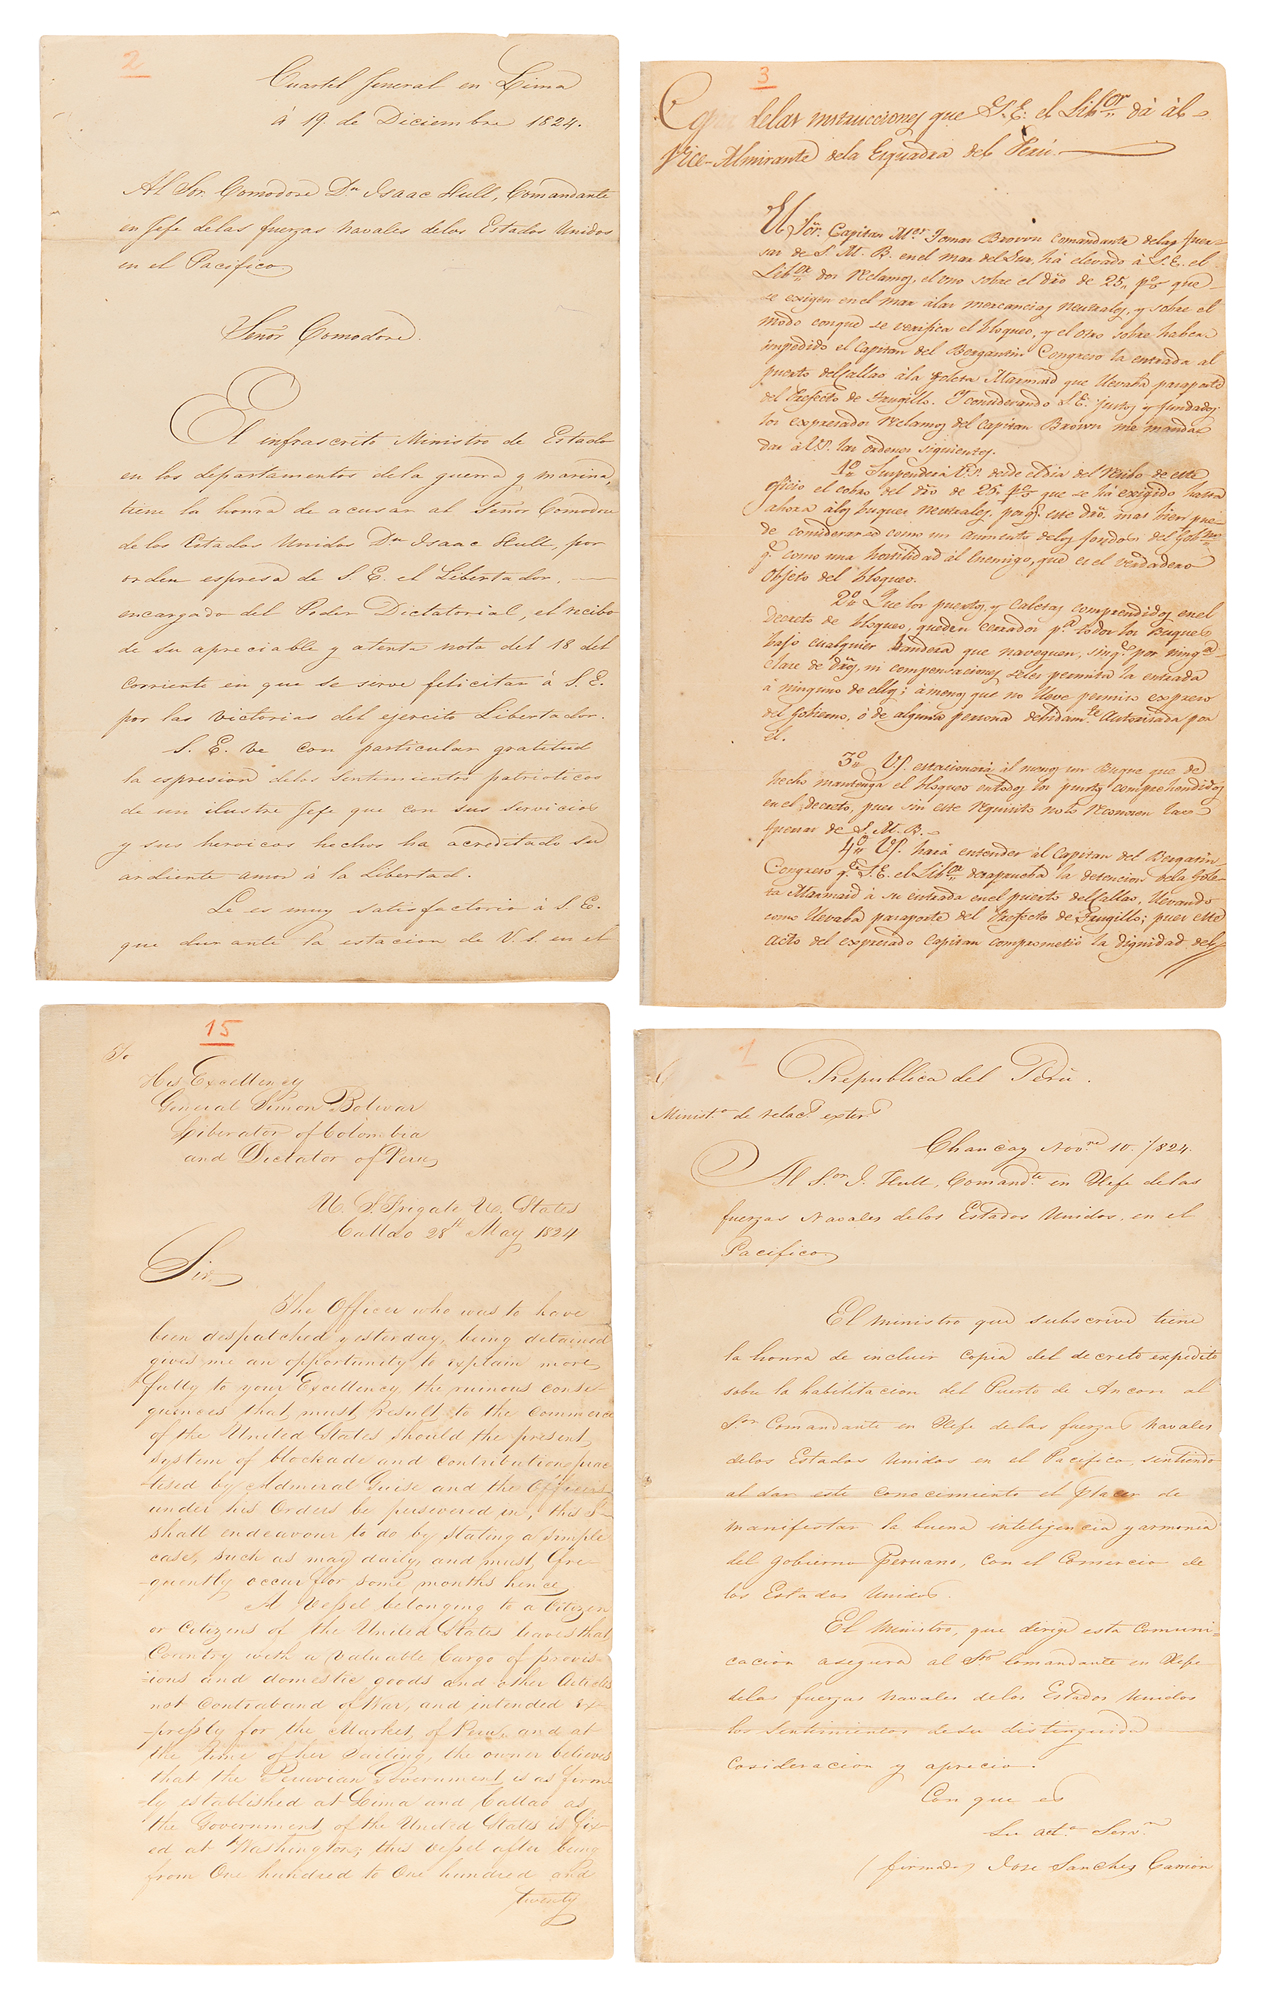 2
Cuartel General en Lima
á 19. de Diciembre 1824.
Al Sor. Comodore Dn. Isaac Hull, Comandante
en Jefe delas fuerzas navales delos Estados Unidos
en el Pacifico
Señor Comodore.
El infrascrito Ministro de Estado
en los departamentos de la guerra y marina,
tiene la honra de acusar al Señor Comodore
delos Estados Unidos Dn. Isaac Hull, por
orden espresa de S. E. el Libertador,
encargado del Poder Dictatorial, el recibo
de su apreciable y atenta nota del 18 del
corriente en que se sirve felicitar á S. E.
por las victorias del ejercito Libertador.
S. E. ve con particular gratitud
la espresion delos sentimientos patrioticos
de un ilustre Jefe que con sus servicios
y sus heroicos hechos ha acreditado su
ardiente amor á la Libertad.
Le es muy satisfactorio á S. E.
que durante la estacion de V. S. en el
3
Copia delas instrucciones que S. E. el Libor. dá ál
Vice-Almirante dela Esquadra del Perú.
El Sōr. Capitan Mor. Tomas Brown comandante delas fuer-
sas de S. M. B. en el mar del Sur, há elevado á S. E. el
Libor. dos reclamos, el uno sobre el dr̄o de 25,, pco que
se exigen en el mar álas mercancias neutrales, y sobre el
modo conque se verifica el bloqueo, y el otro sobre haber
impedido el Capitan del Bergantin Congreso la entrada al
puerto del Callao ála Goleta Marmaid que llevaba pasaporte
del Prefecto de Trugillo. Y considerando S. E. justos y fundados
los expresados reclamos del Capitan Brown me manda
dar á V.S. las ordenes siguientes.
1º Suspenderá V.S. desde el dia del recibo de este
oficio el cobro del dr̄o de 25. pco que se há exigido hasta
ahora álos buques neutrales, porq. este dr̄o. mas bien pue-
de considerarse como un aumento delos fondos del Gobno.
q. como una hostilidad al enemigo, que es el verdadero
objeto del bloqueo.
2º Que los puertos, y caletas comprendidos en el
decreto de bloqueo, queden cerrados pa. todos los Buques
bajo cualquier bandera que naveguen, sinq. por ninga.
clase de dr̄os, ni compensaciones seles permita la entrada
á ninguno de ellos; á menos que no lleve permiso expreso
del Gobierno, ó de alguna persona debidamte. Autorizada por
él.
3º V.S. estacionará al menos un Buque que de
hecho mantenga el bloqueo entodos los puertos comprehendidos
en el decreto, pues sin este requisito no lo reconocen las
fuerzas de S. M. B.
4º V.S. hará entender al Capitan del Bergantin
Congreso q. S. E. el Libor. desaprueba la detencion dela Gole-
ta Marmaid á su entrada en el puerto del Callao, llevando
como llevaba pasaporte del Prefecto de Trugillo; pues este
acto del expresado Capitan comprometió la dignidad del
15
To
His Excellency
General Simon Bolivar
Liberator of Colombia
and Dictator of Peru
U. S. Frigate U. States
Callao 28th May 1824
Sir
The Officer who was to have
been despatched yesterday, being detained
gives me an opportunity to explain more
fully to your Excellency, the ruinous conse-
quences that must result to the Commerce
of the United States should the present
system of blockade and contributions prac-
-tised by Admiral Guise and the Officers
under his Orders be persevered in, this I
shall endeavour to do by stating a simple
case, such as may daily, and must, fre-
-quently occur for some months hence
A Vessel belonging to a Citizen
or Citizens of the United States leaves that
Country with a valuable Cargo of provis-
-ions and domestic goods and other Articles
not Contraband of War, and intended ex-
-pressly for the Market of Peru, and at
the time of her Sailing, the owner believes
that the Peruvian Government is as firm-
ly established at Lima and Callao as
the Government of the United States is fix-
ed at Washington; this vessel after being
from One hundred to One hundred and
twenty
1
Republica del Perú.
Ministo. de relacs. exters.
Chancay Novre. 10. 1824.
Al Sor. I. Hull, Comande. en Xefe de las
fuerzas Navales delos Estados Unidos, en el
Pacifico
El ministro que subscrive tiene
la honra de incluir copia del decreto expedido
sobre la habilitacion del Puerto de Ancon al
Sor. Comandante en Xefe de las fuerzas navales
delos Estados Unidos en el Pacifico, sintiendo
al dar este conocimiento el placer de
manifestar la buena inteligencia y armonia
del gobierno Peruano, con el Comercio de
los Estados Unidos.
El Ministro, que dirige esta comuni-
cacion asegura al Sor. Comandante en Xefe
delas fuerzas navales de los Estados Unidos
los sentimientos desu distinguida
Cosideracion y aprecio.
Con que es
Su atto. Servr.
(firmado) Jose Sanches Carrion